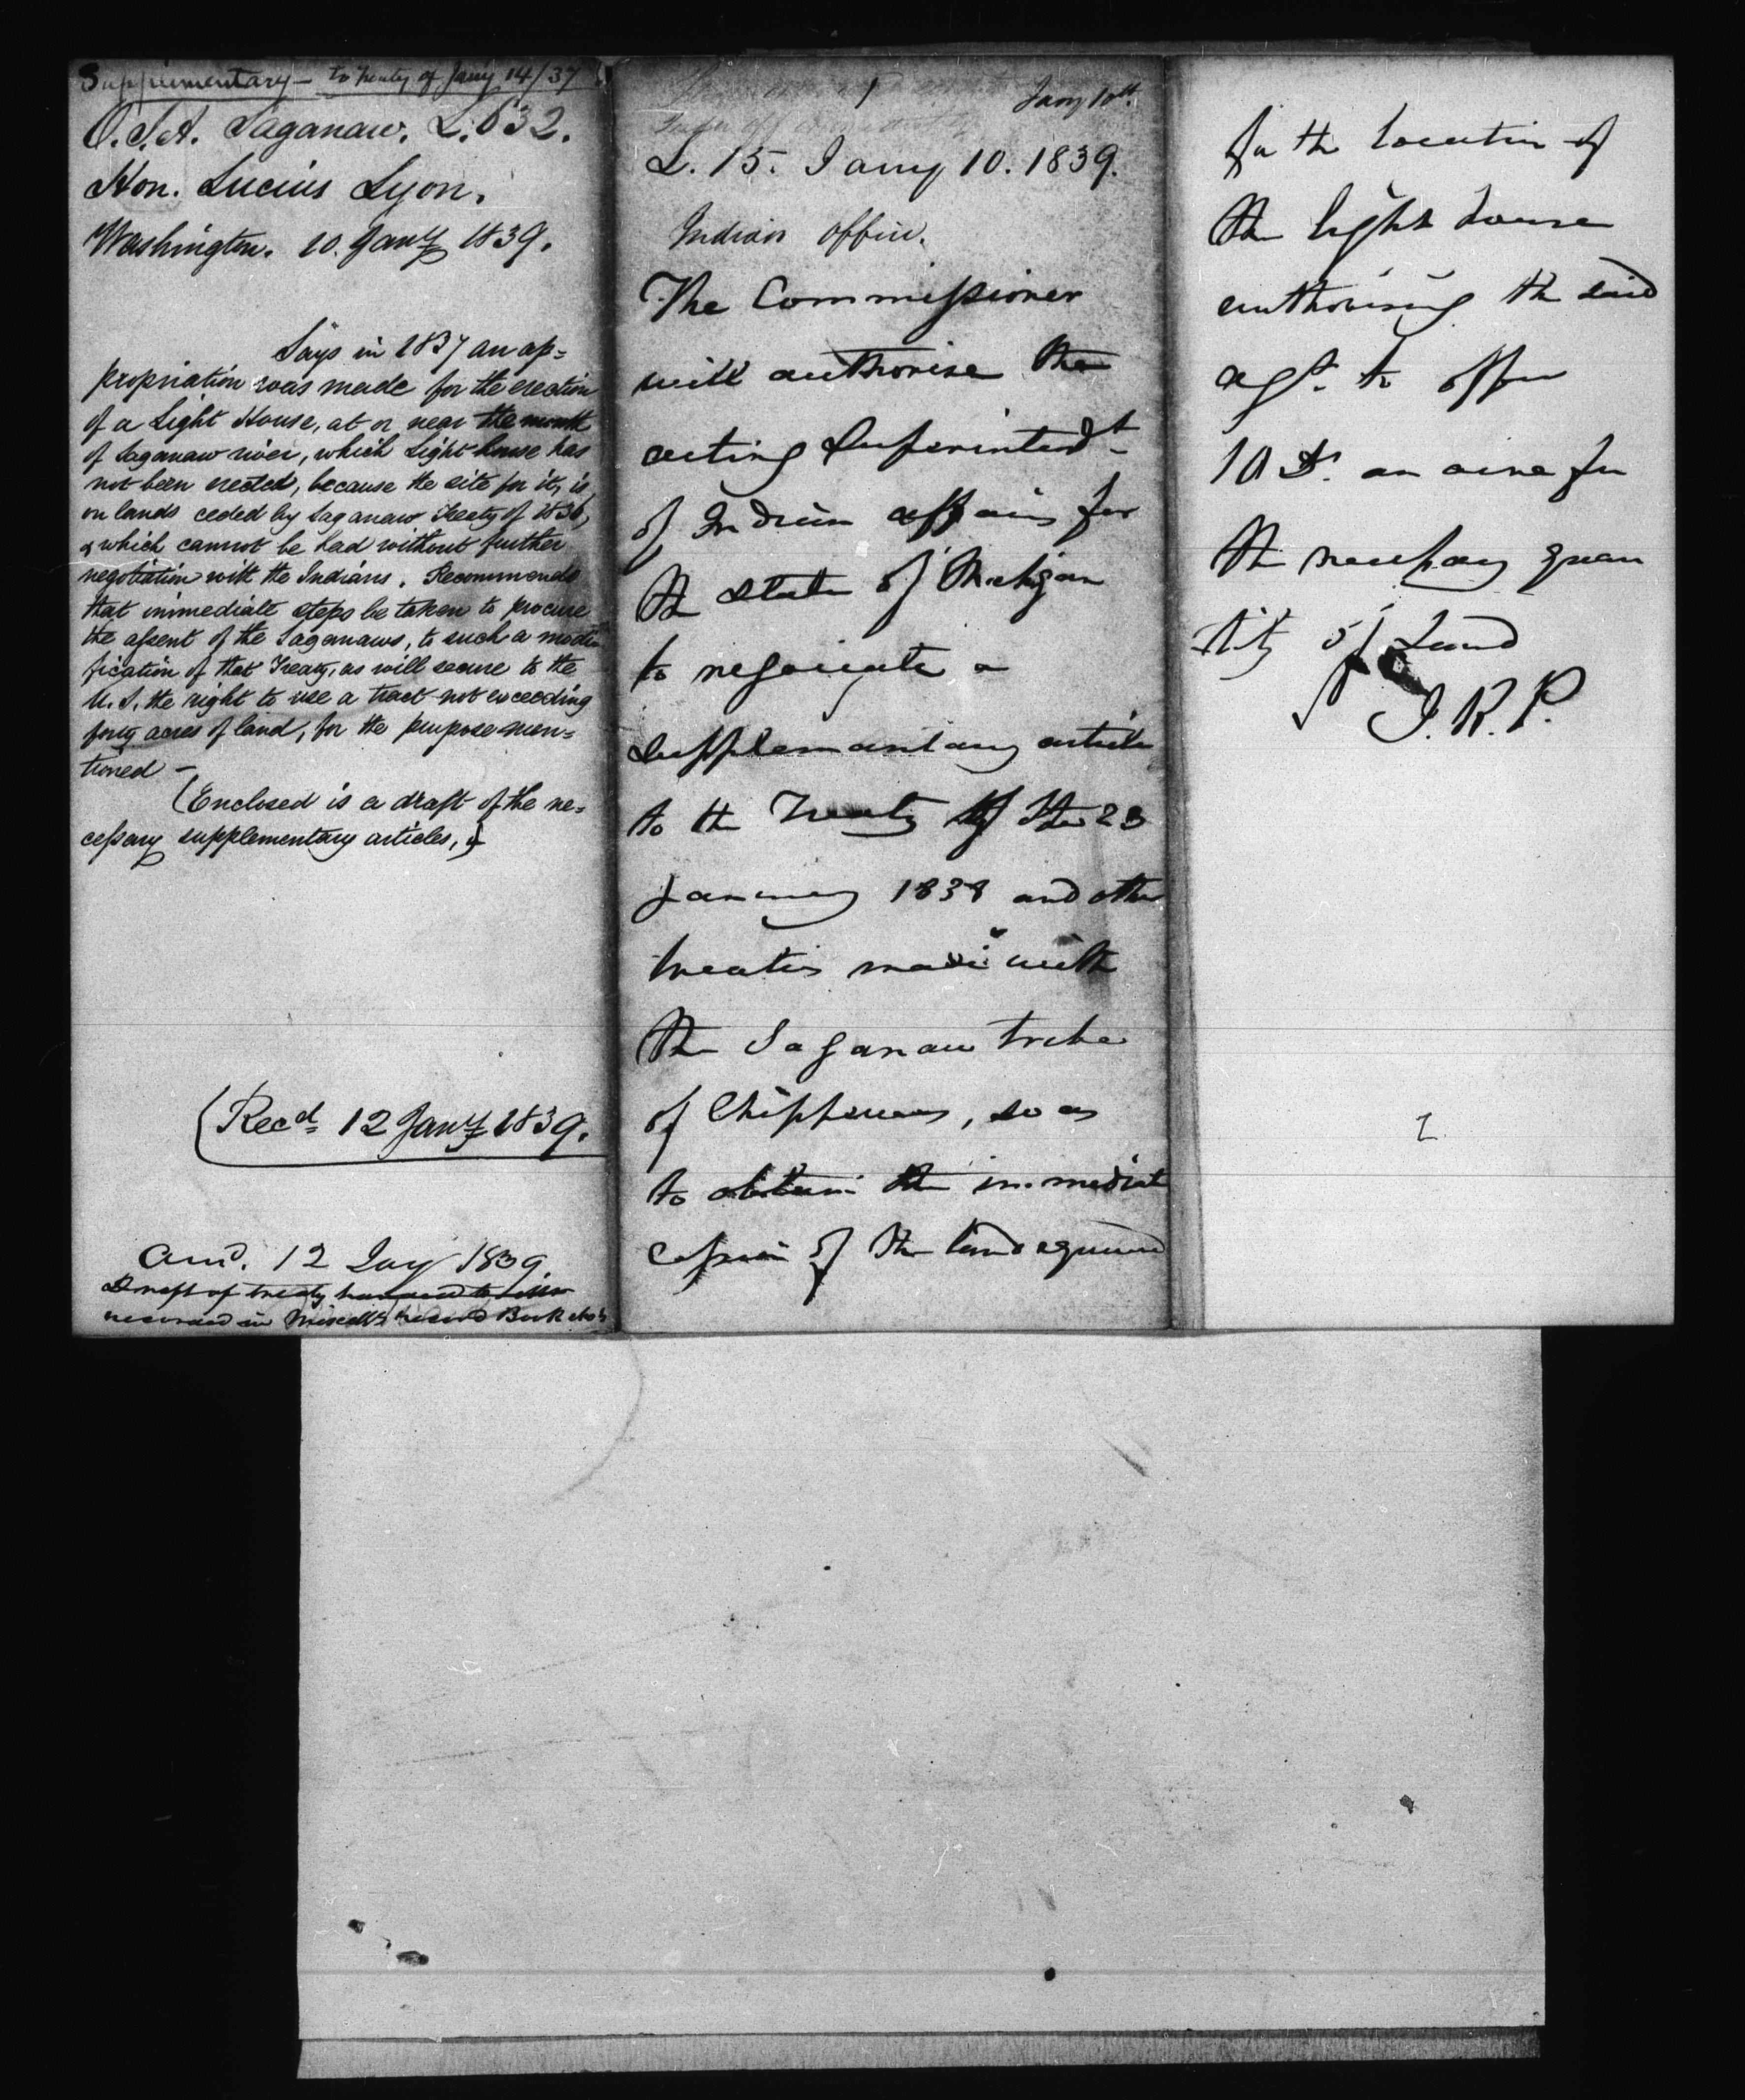 Supplementary - to treaty of Jany 14/37
O.I.A. Saganaw. L. 632.
Hon. Lucius Lyon.
Washington. 10. Jany 1839.
Says in 1837 an ap=
propriation was made for the erection
of a Light House, at or near the mouth
of Saganaw river, which Light-house has
not been erected, because the site for it, is
on lands ceded by Saganaw Treaty of 1836,
& which cannot be had without further
negotiation with the Indians. Recommends
that immediate steps be taken to procure
the assent of the Saganaws, to such a modi
fication of that Treaty, as will secure to the
U.S. the right to use a tract not exceeding
forty acres of land, for the purpose men=
tioned -
(Enclosed is a draft of the ne=
cessary supplementary articles,)
(Recd 12 Jany 1839.
Ansd. 12 Jay 1839.
Draft of treaty handed to him
recorded in Miscells record Book
1
Jany 10th
L. 15. Jany 10. 1839.
Indian office.
The Commissioner
will authorise the
acting Superintendt
of Indian affairs for
the state of Michigan
to negociate a
supplementary article
to the Treaty of the 23
January 1838 and other
treaties made with
the Saganaw tribe
of Chippewas, so as
to obtain the immediate
cession of the land required
for the location of
the light house
authorising the said
agt. to offer
10 Ds. an acre for
the necessary quan
tity of Land
J. R. P.
2